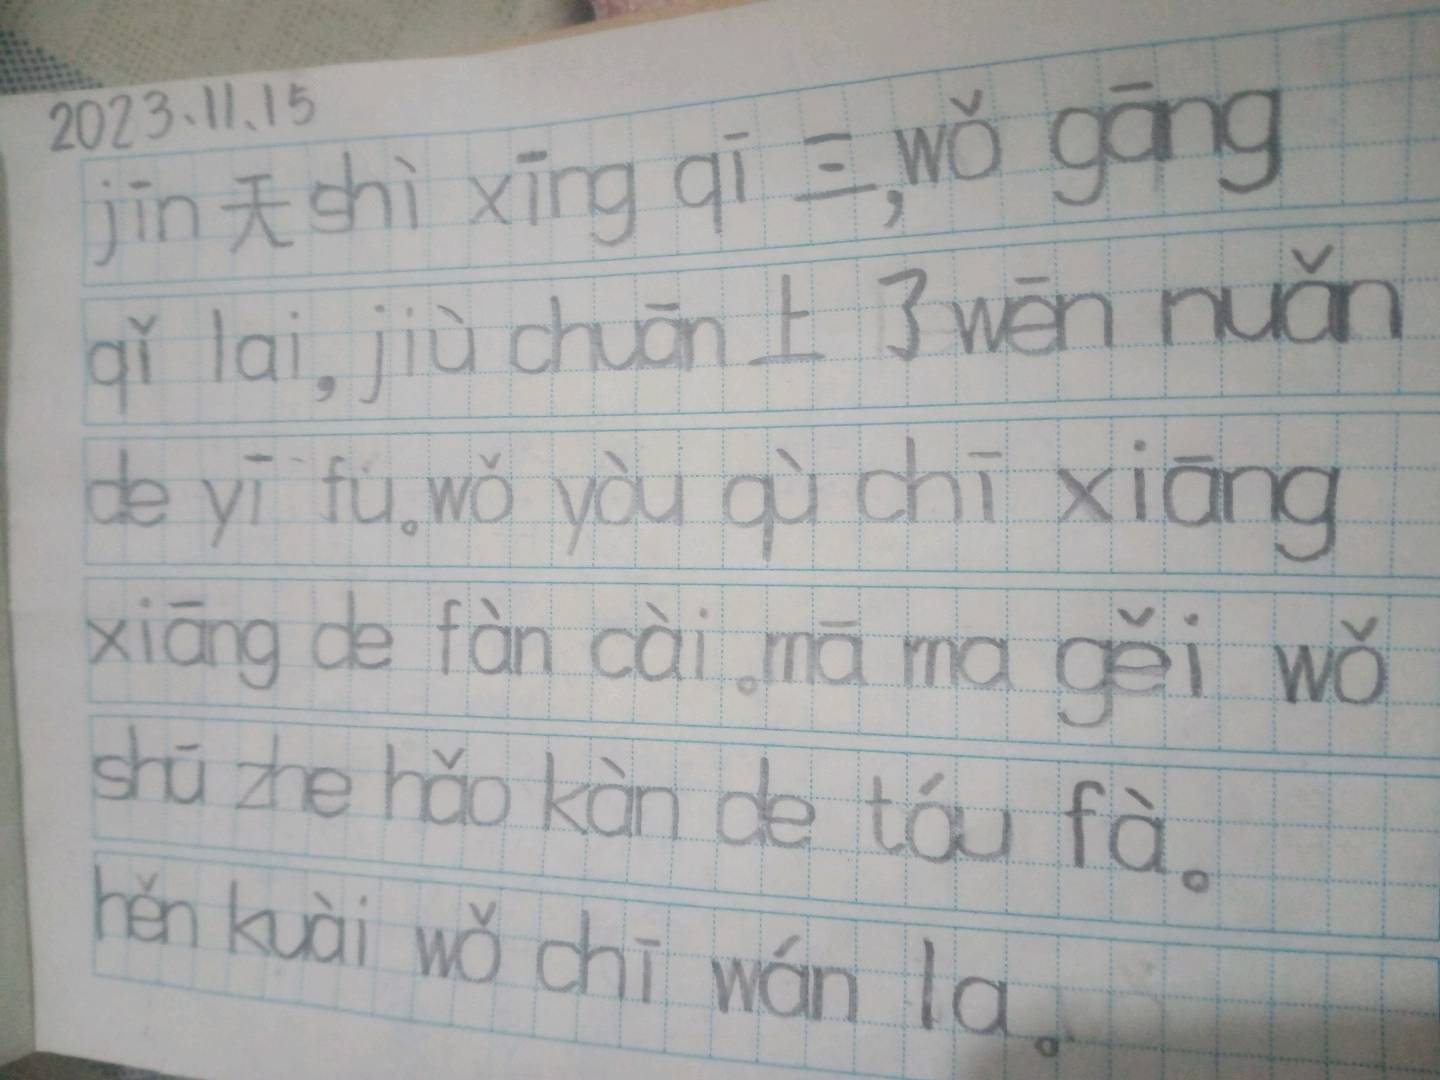 2023.11.15
jīn 天 shì xīng qī 三,wǒ gāng
qǐ lai,jiù chuān 上 了 wēn nuǎn
de yī fú。wǒ yòu qù chī xiāng
xiāng de fàn cài。mā ma gěi wǒ
shū zhe hǎo kàn de tóu fà。
hěn kuài wǒ chī wán la。